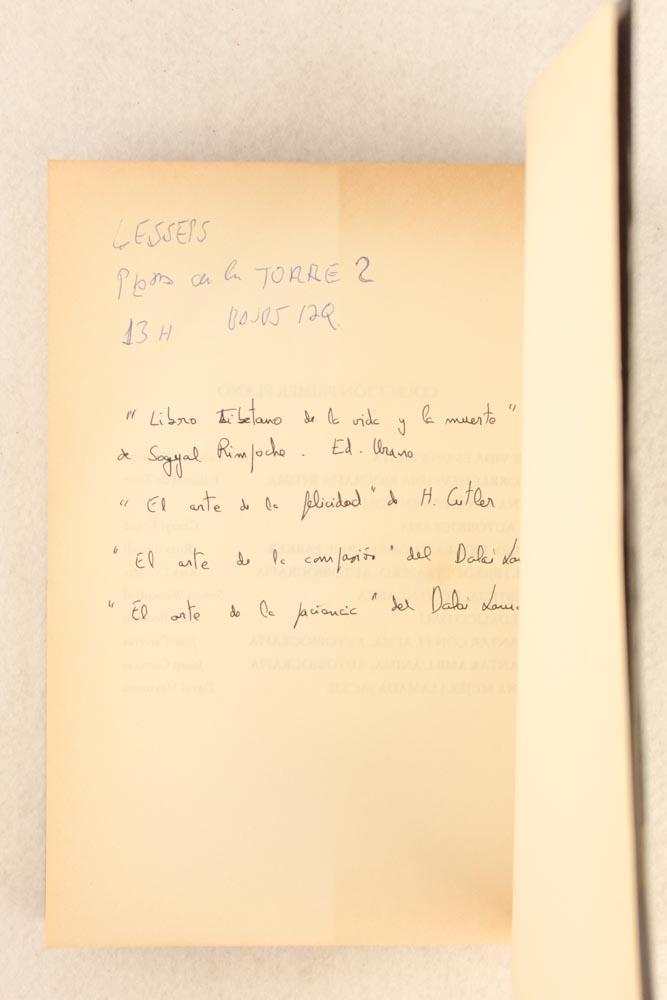 LESSEPS
Plaza de la TORRE 2
13 H BAJOS IZQ.
"Libro Tibetano de la vida y la muerte"
de Sogyal Rimpoche. Ed. Urano
"El arte de la felicidad" de H. Cutler
"El arte de la compasión" del Dalai La
"El arte de la paciencia" del Dalai Lam